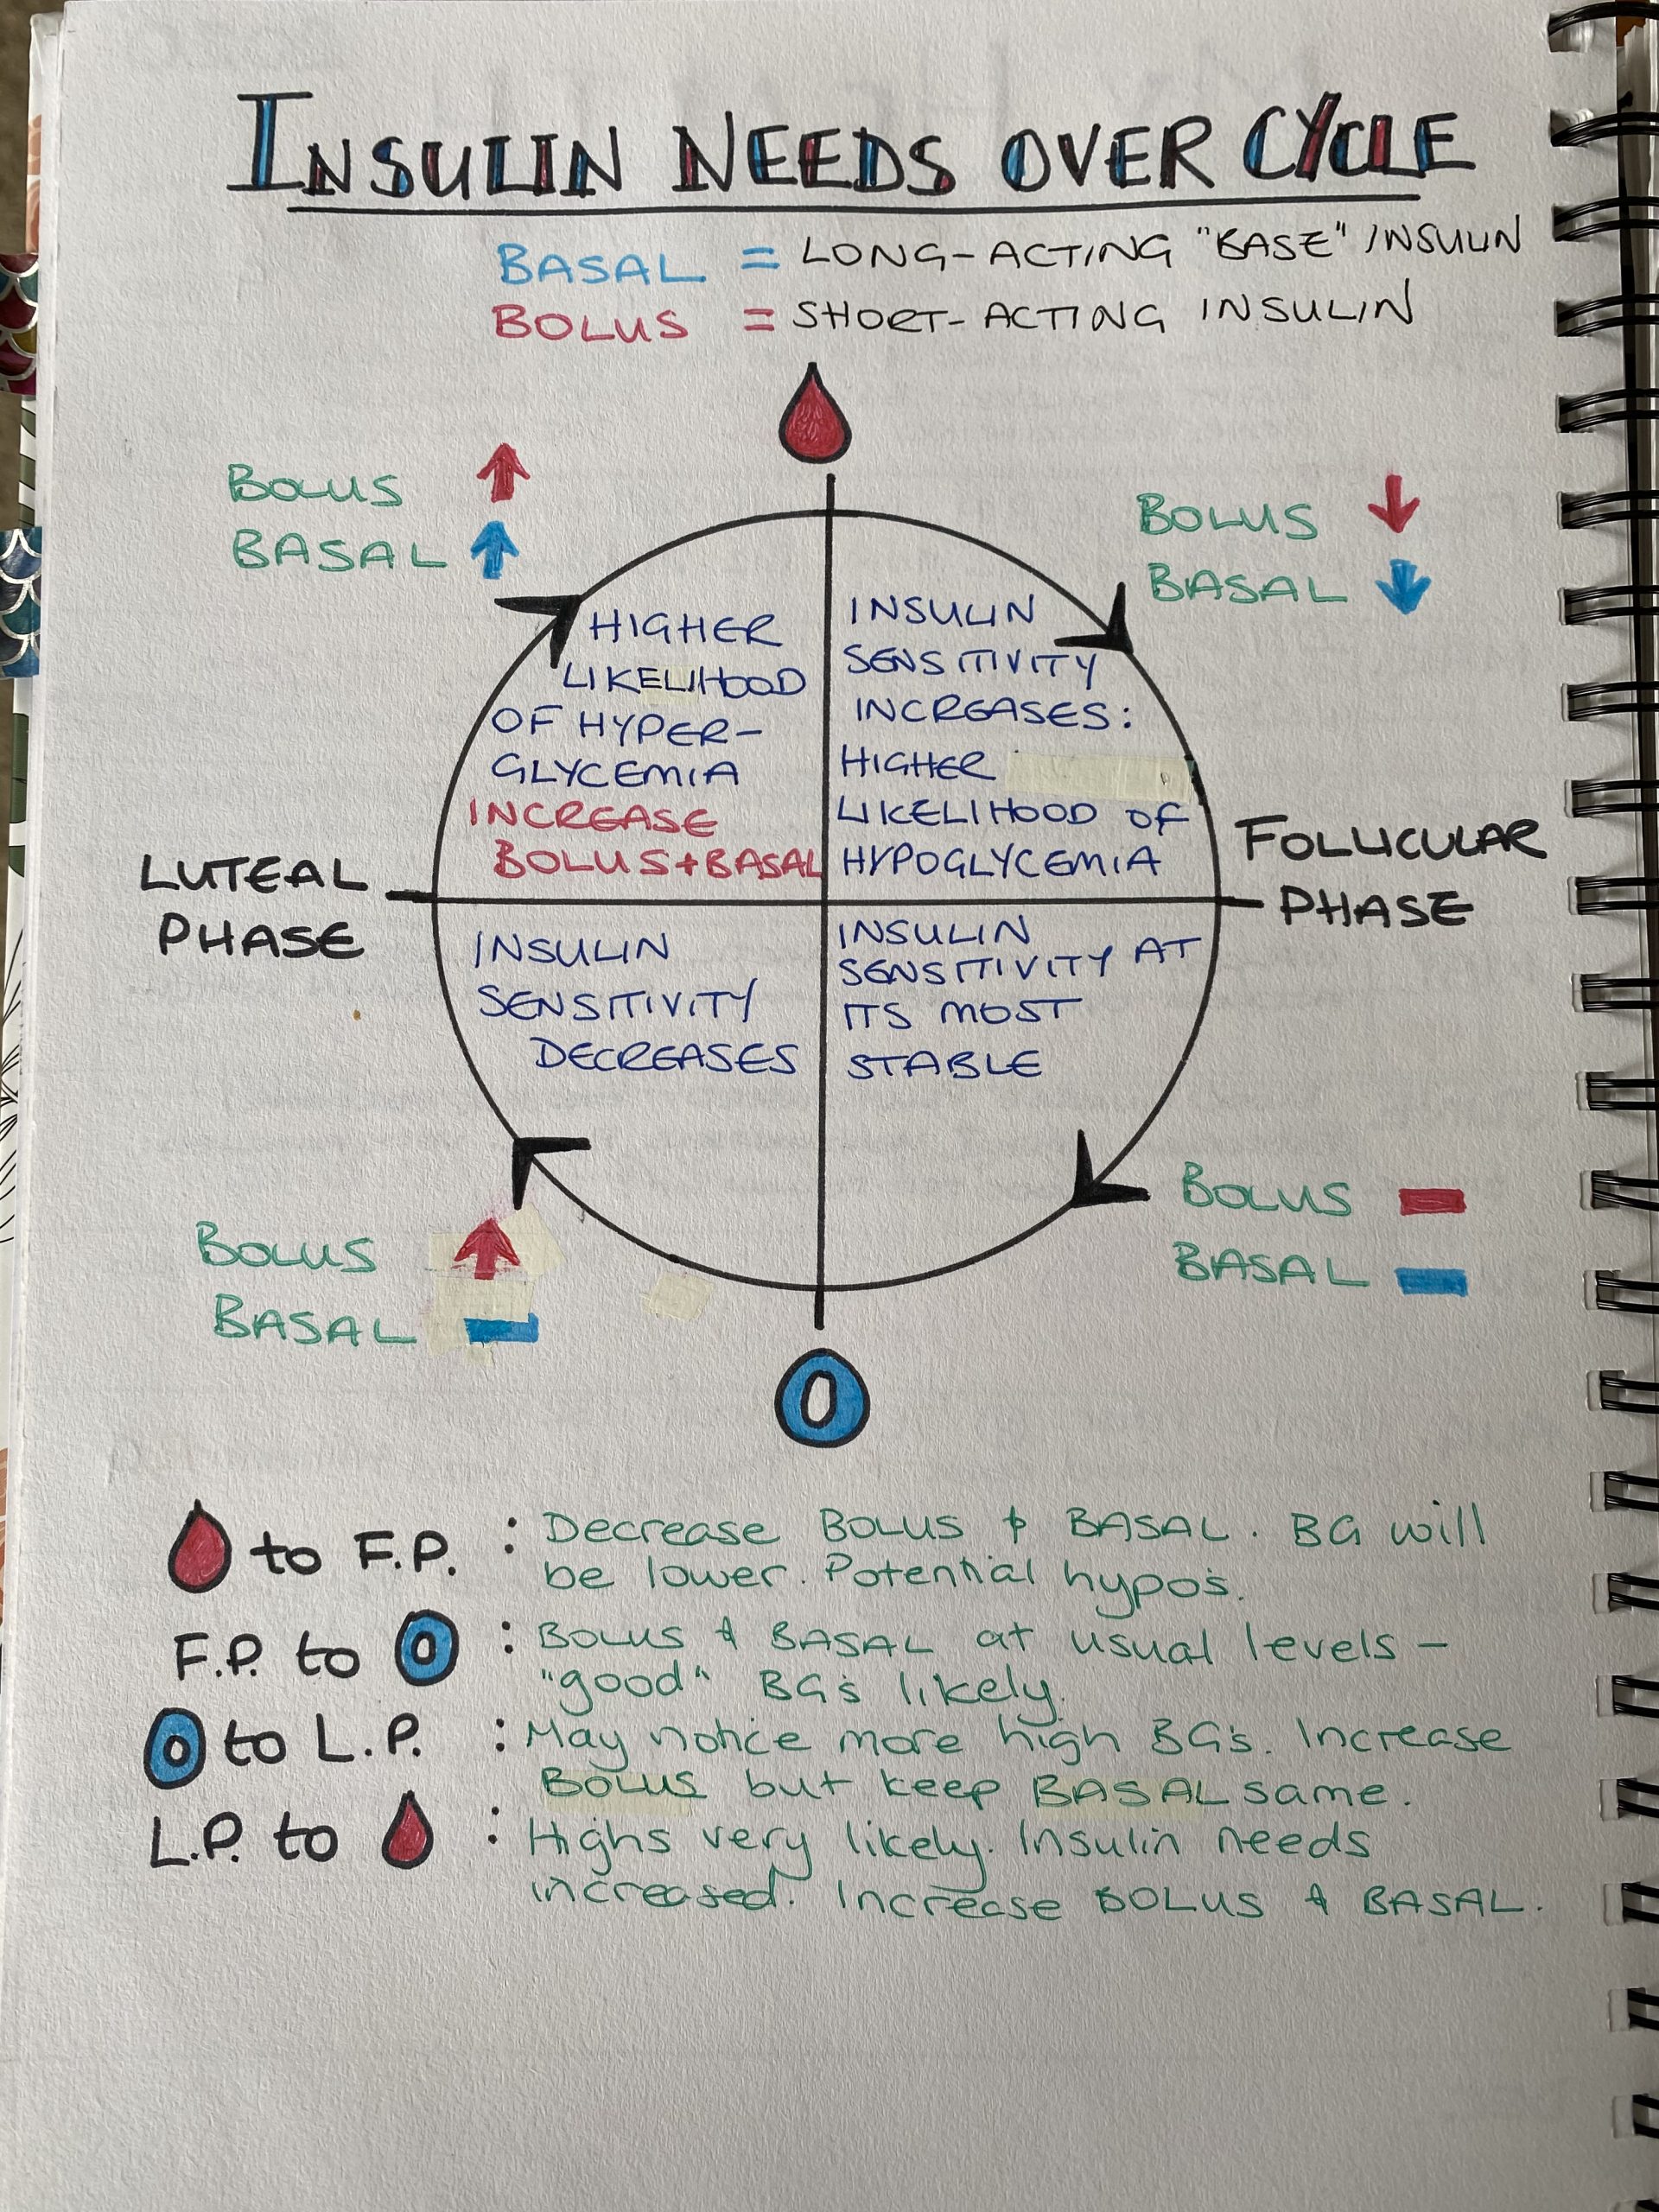 INSULIN NEEDS OVER CYCLE
BASAL = LONG-ACTING "BASE" INSULIN
BOLUS = SHORT-ACTING INSULIN
BOLUS ↑
BASAL ↑
BOLUS ↓
BASAL ↓
HIGHER
LIKELIHOOD
OF HYPER-
GLYCEMIA
INCREASE
BOLUS+BASAL
INSULIN
SENSITIVITY
INCREASES:
HIGHER
LIKELIHOOD OF
HYPOGLYCEMIA
LUTEAL
PHASE
FOLLICULAR
PHASE
INSULIN
SENSITIVITY
DECREASES
INSULIN
SENSITIVITY AT
ITS MOST
STABLE
BOLUS ↑
BASAL –
BOLUS –
BASAL –
O
to F.P. : Decrease BOLUS & BASAL. BG will
be lower. Potential hypo's.
F.P. to O : BOLUS & BASAL at usual levels –
"good" BG's likely.
O to L.P. : May notice more high BG's. Increase
BOLUS but keep BASAL same.
L.P. to : Highs very likely. Insulin needs
increased. Increase BOLUS & BASAL.